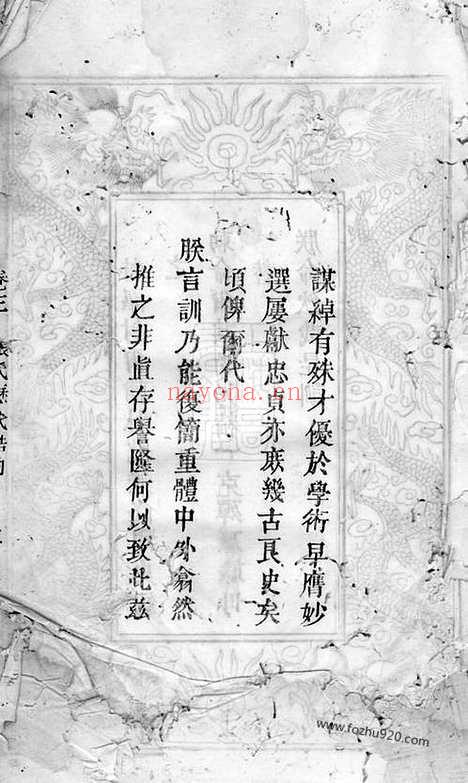 謀綽有殊才優於學術早膺妙
選屢獻忠貞亦庶幾古良史矣
頃俾爾代
朕言訓乃能復簡重體中外翕然
推之非眞存譽隆何以致此茲
nayona.cn
www.fozhu920.com